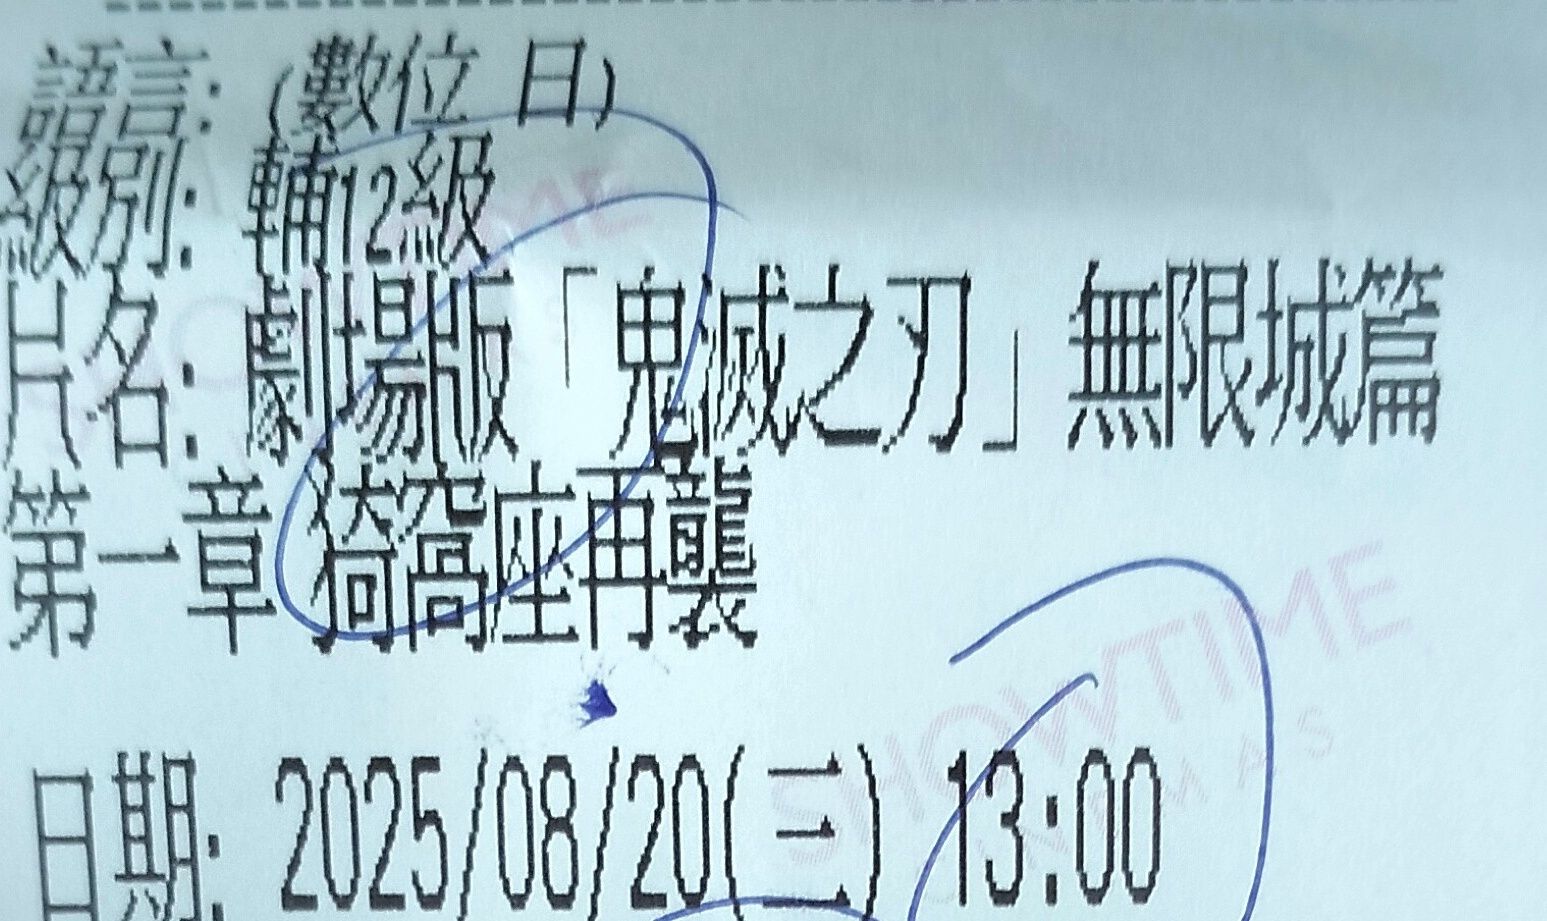 語言: (數位 日)
級別: 輔12級
片名: 劇場版「鬼滅之刃」無限城篇
第一章 猗窩座再襲
日期: 2025/08/20(三) 13:00
SHOWTIME
SHOWTIME
CINEMAS